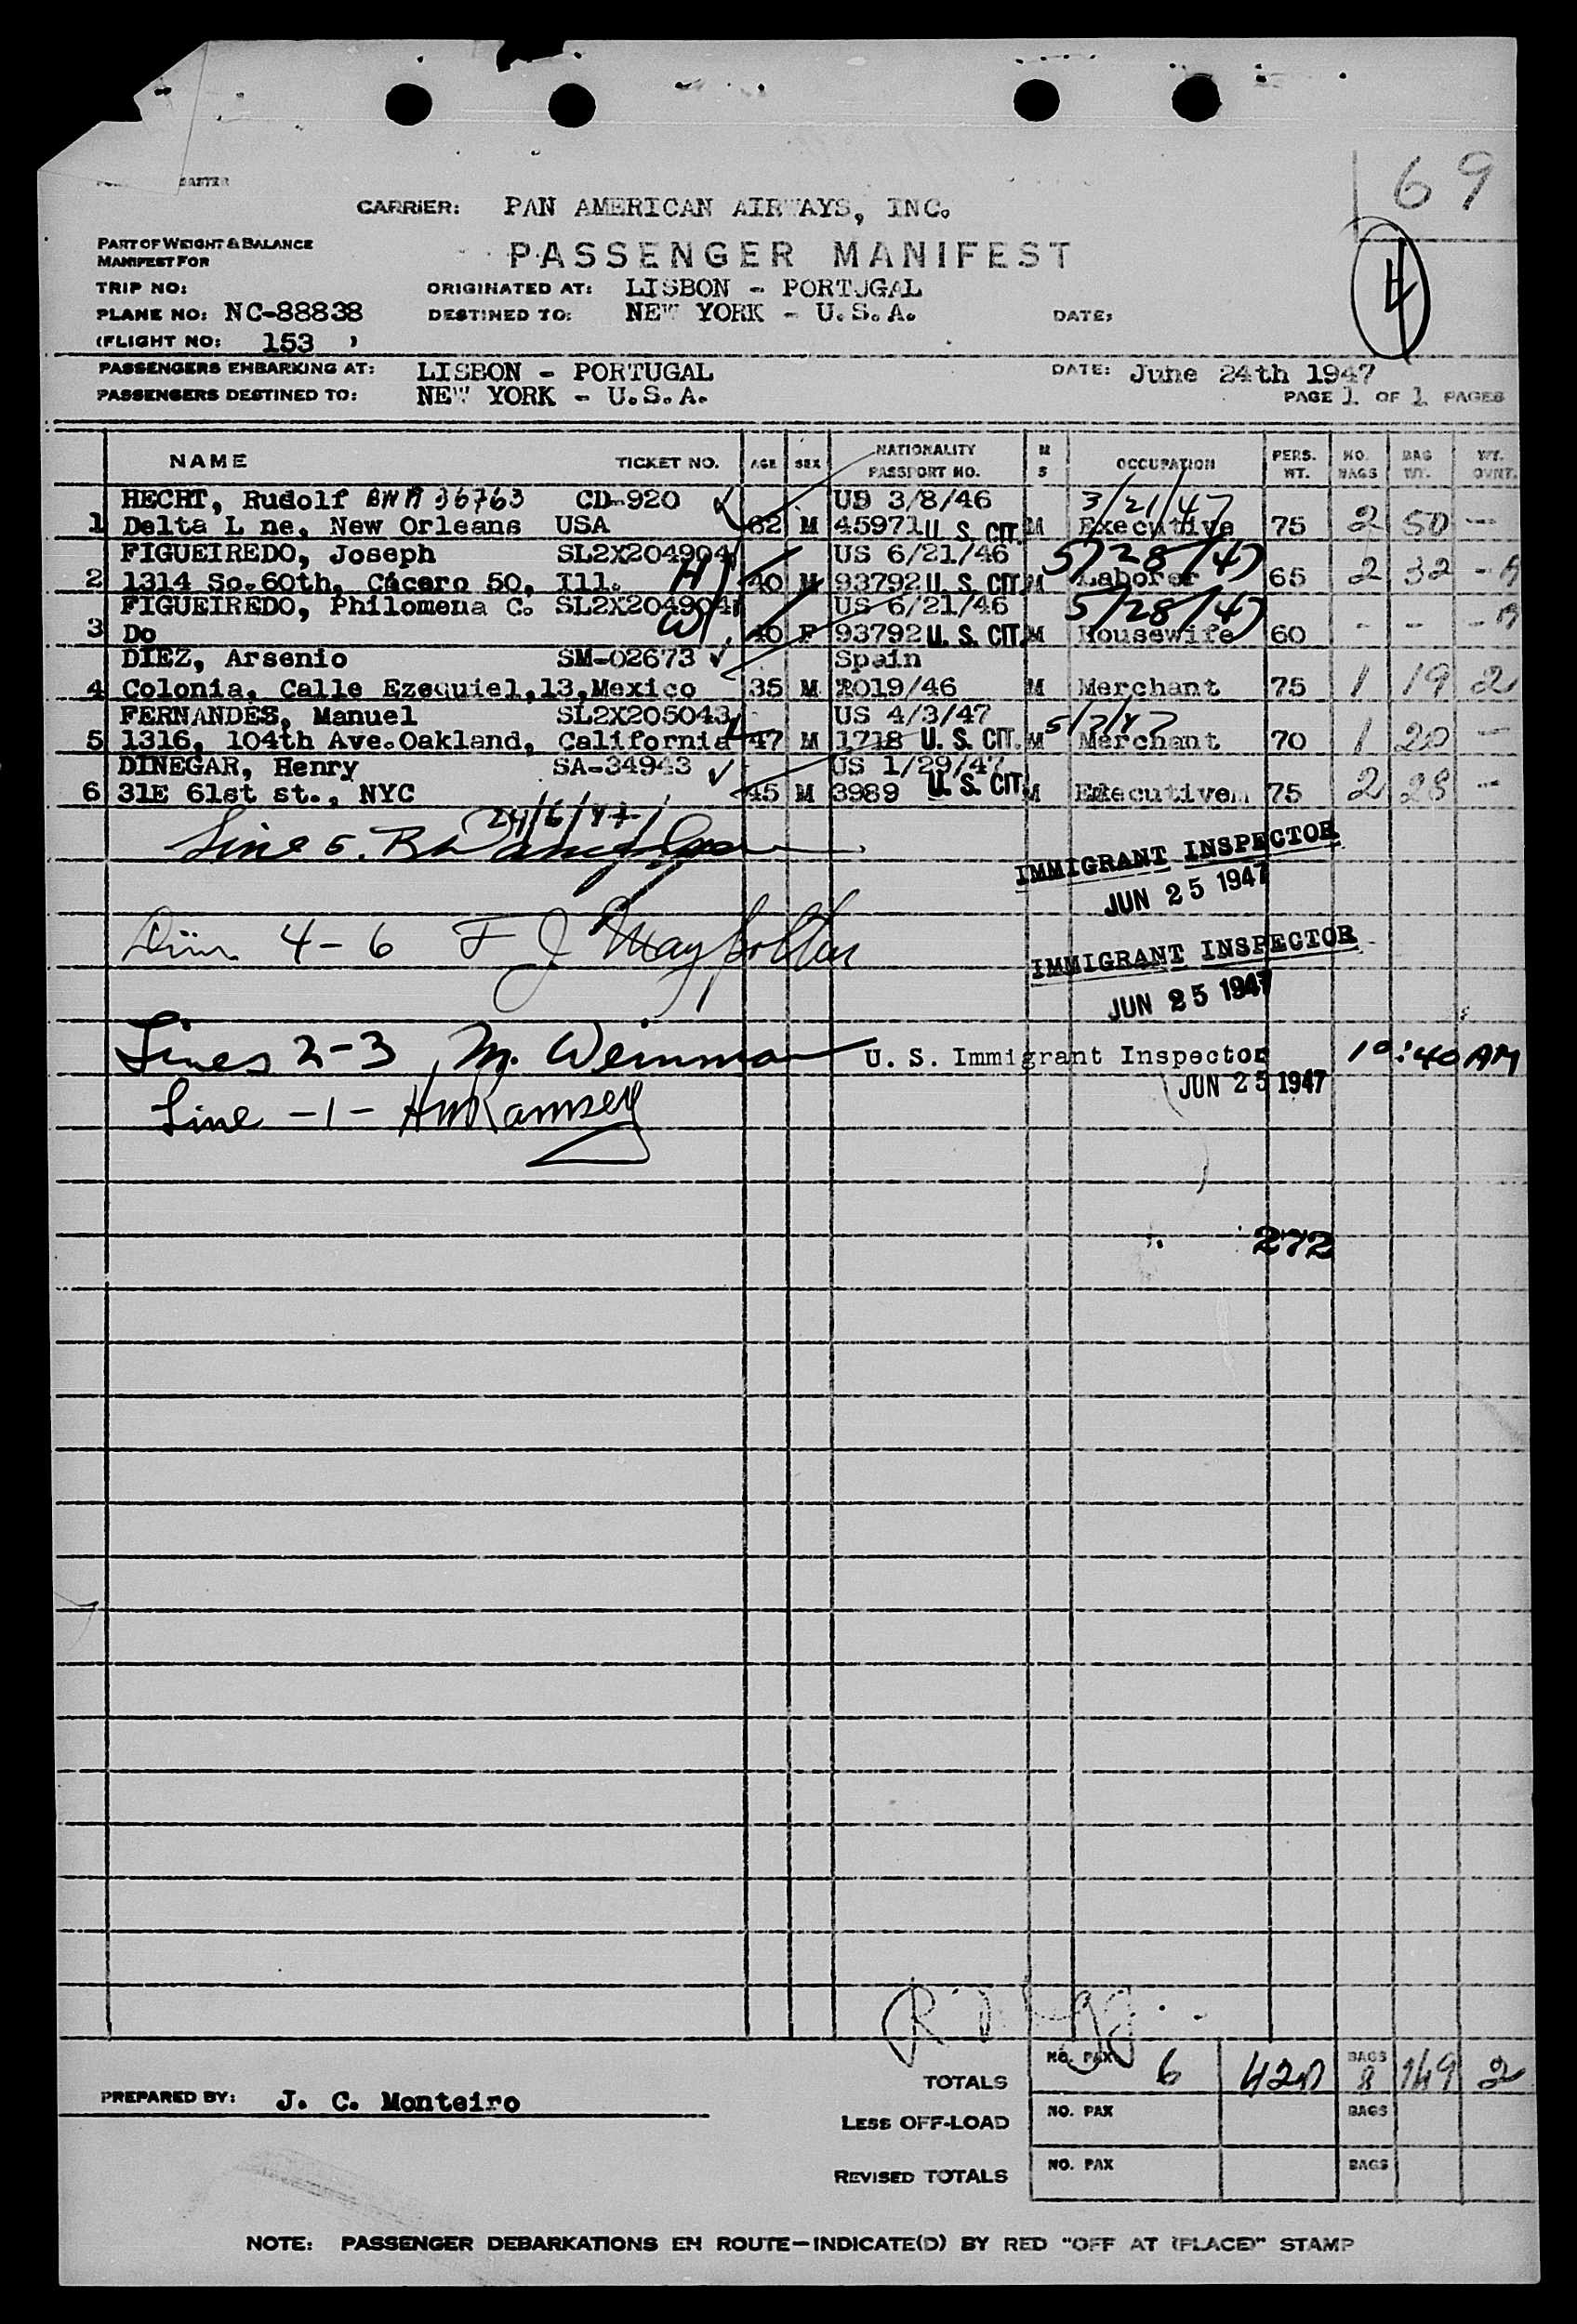 69
CARRIER: PAN AMERICAN AIRWAYS, INC.
PART OF WEIGHT & BALANCE
MANIFEST FOR
PASSENGER MANIFEST
4
TRIP NO:
ORIGINATED AT: LISBON - PORTUGAL
PLANE NO: NC-88838
DESTINED TO: NEW YORK - U.S.A.
DATE:
(FLIGHT NO: 153 )
PASSENGERS EMBARKING AT: LISBON - PORTUGAL
DATE: June 24th 1947
PASSENGERS DESTINED TO: NEW YORK - U.S.A.
PAGE 1 OF 1 PAGES
NAME TICKET NO. AGE SEX NATIONALITY PASSPORT NO. M S OCCUPATION PERS. WT. NO. BAGS BAG WT. WT. OVNT.
HECHT, Rudolf BNA 36763 CD-920 US 3/8/46 3/21/47
1 Delta L ne, New Orleans USA 62 M 45971 U. S. CIT. M Executive 75 2 50 --
FIGUEIREDO, Joseph SL2X204904 US 6/21/46 5/28/47
2 1314 So.60th, Cácero 50, Ill. H 40 M 93792 U. S. CIT. M Laborer 65 2 32 -
FIGUEIREDO, Philomena C. SL2X204904 US 6/21/46 5/28/47
3 Do W 40 F 93792 U. S. CIT. M Housewife 60 - - -
DIEZ, Arsenio SM-02673 Spain
4 Colonia, Calle Ezequiel,13,Mexico 35 M 2019/46 M Merchant 75 1 19 2
FERNANDES, Manuel SL2X205043 US 4/3/47 5/7/47
5 1316, 104th Ave.Oakland, California 47 M 1718 U. S. CIT. M Merchant 70 1 20 -
DINEGAR, Henry SA-34943 US 1/29/47
6 31E 61st st., NYC 45 M 3989 U. S. CIT. M Executive 75 2 28 --
24/6/47
Line 5.
IMMIGRANT INSPECTOR
JUN 25 1947
4-6 F J
IMMIGRANT INSPECTOR
JUN 25 1947
Lines 2-3 M. Weinman U. S. Immigrant Inspector 10:40 AM
JUN 25 1947
Line -1- HWRamsey
272
TOTALS NO. PAX 6 420 BAGS 8 149 2
PREPARED BY: J. C. Monteiro
LESS OFF-LOAD NO. PAX BAGS
REVISED TOTALS NO. PAX BAGS
NOTE: PASSENGER DEBARKATIONS EN ROUTE—INDICATE(D) BY RED "OFF AT (PLACE)" STAMP